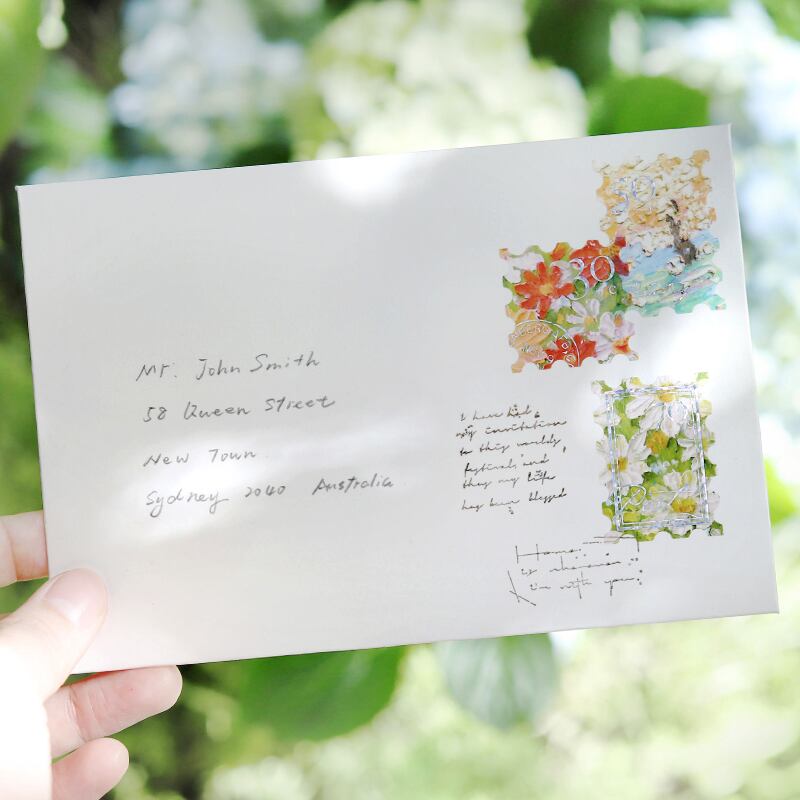 Mr. John Smith
58 Queen Street
New Town
Sydney 2040 Australia
30
I have had
my invitation
to this world's
festival, and
thus my life
has been blessed
Home
is wherever
I'm with you.